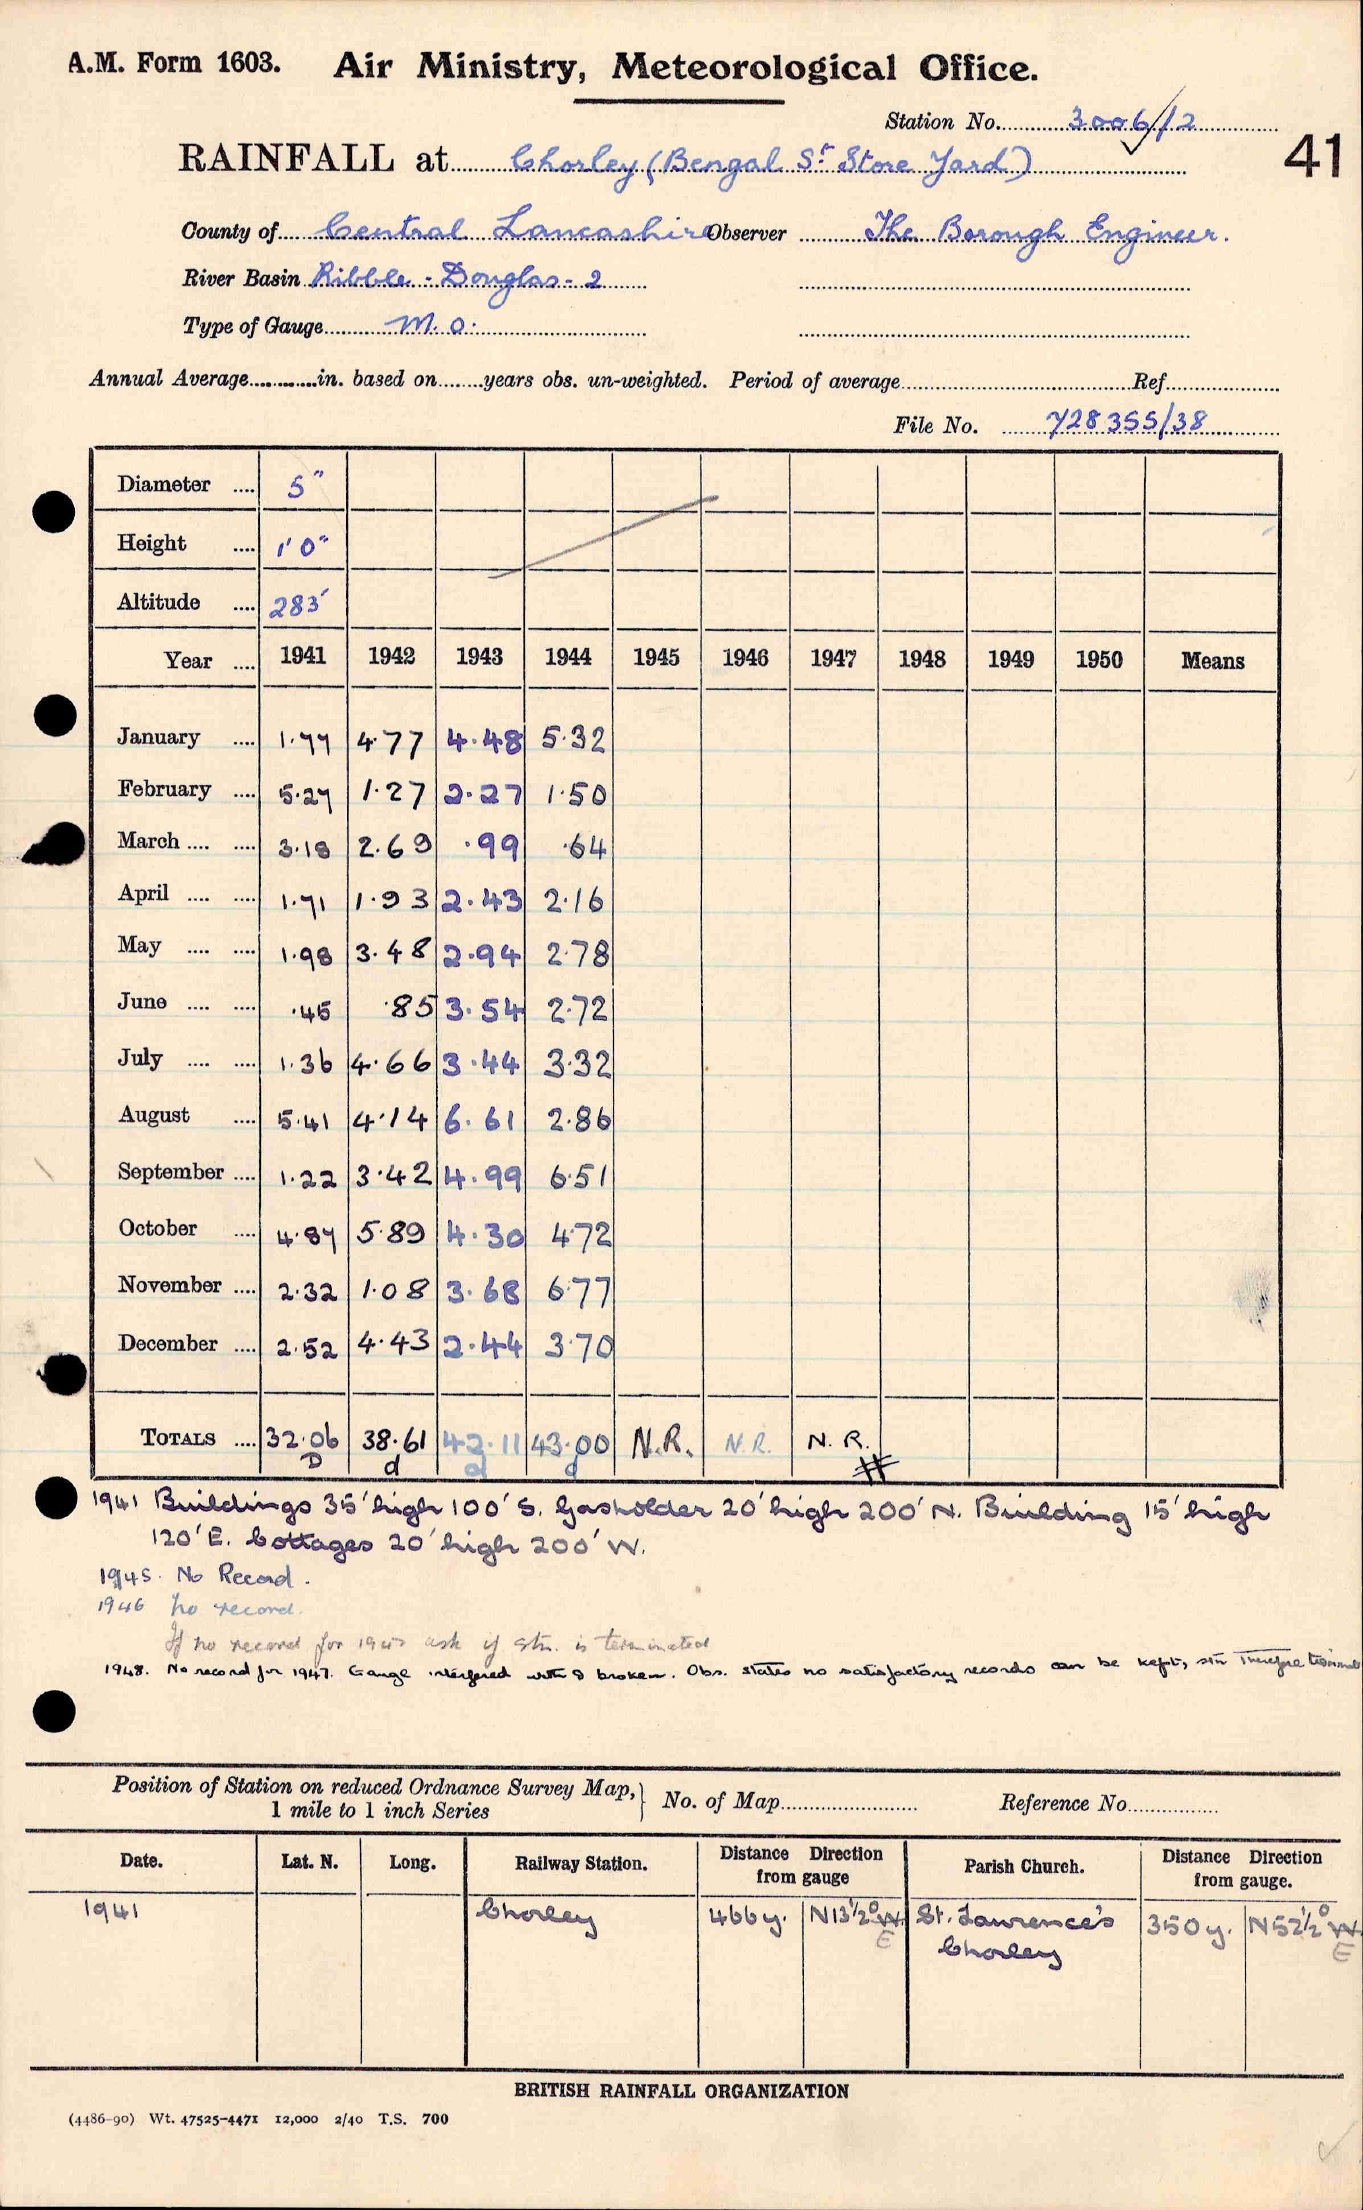 A.M. Form 1603. Air Ministry, Meteorological Office.
Station No. 3006/2
41
RAINFALL at Chorley (Bengal St Store Yard)
County of Central Lancashire Observer The Borough Engineer.
River Basin Ribble - Douglas - 2
Type of Gauge M.O.
Annual Average............in. based on........years obs. un-weighted. Period of average........Ref........
File No. 728355/38
Diameter .... 5"
Height .... 1'0"
Altitude .... 283'
Year .... 1941 1942 1943 1944 1945 1946 1947 1948 1949 1950 Means
January .... 1.77 4.77 4.48 5.32
February .... 5.27 1.27 2.27 1.50
March .... .... 3.18 2.69 .99 .64
April .... .... 1.71 1.93 2.43 2.16
May .... .... 1.98 3.48 2.94 2.78
June .... .... .45 .85 3.54 2.72
July .... .... 1.36 4.66 3.44 3.32
August .... 5.41 4.14 6.61 2.86
September .... 1.22 3.42 4.99 6.51
October .... 4.87 5.89 4.30 4.72
November .... 2.32 1.08 3.68 6.77
December .... 2.52 4.43 2.44 3.70
TOTALS .... 32.06 38.61 42.11 43.00 N.R. N.R. N.R.
D d d d #
1941 Buildings 35' high 100' S. Gasholder 20' high 200' N. Building 15' high
120' E. Cottages 20' high 200' W.
1945. No Record.
1946 no record.
If no record for 1947 ask if stn. is terminated
1948. No record for 1947. Gauge interfered with & broken. Obs. states no satisfactory records can be kept, stn therefore
Position of Station on reduced Ordnance Survey Map, } No. of Map........ Reference No........
1 mile to 1 inch Series
Date. Lat. N. Long. Railway Station. Distance Direction from gauge Parish Church. Distance Direction from gauge.
1941 Chorley 466 y. N13½° W E St. Lawrence's 350 y. N52½° W E
Chorley
BRITISH RAINFALL ORGANIZATION
(4486-90) Wt. 47525-4471 12,000 2/40 T.S. 700